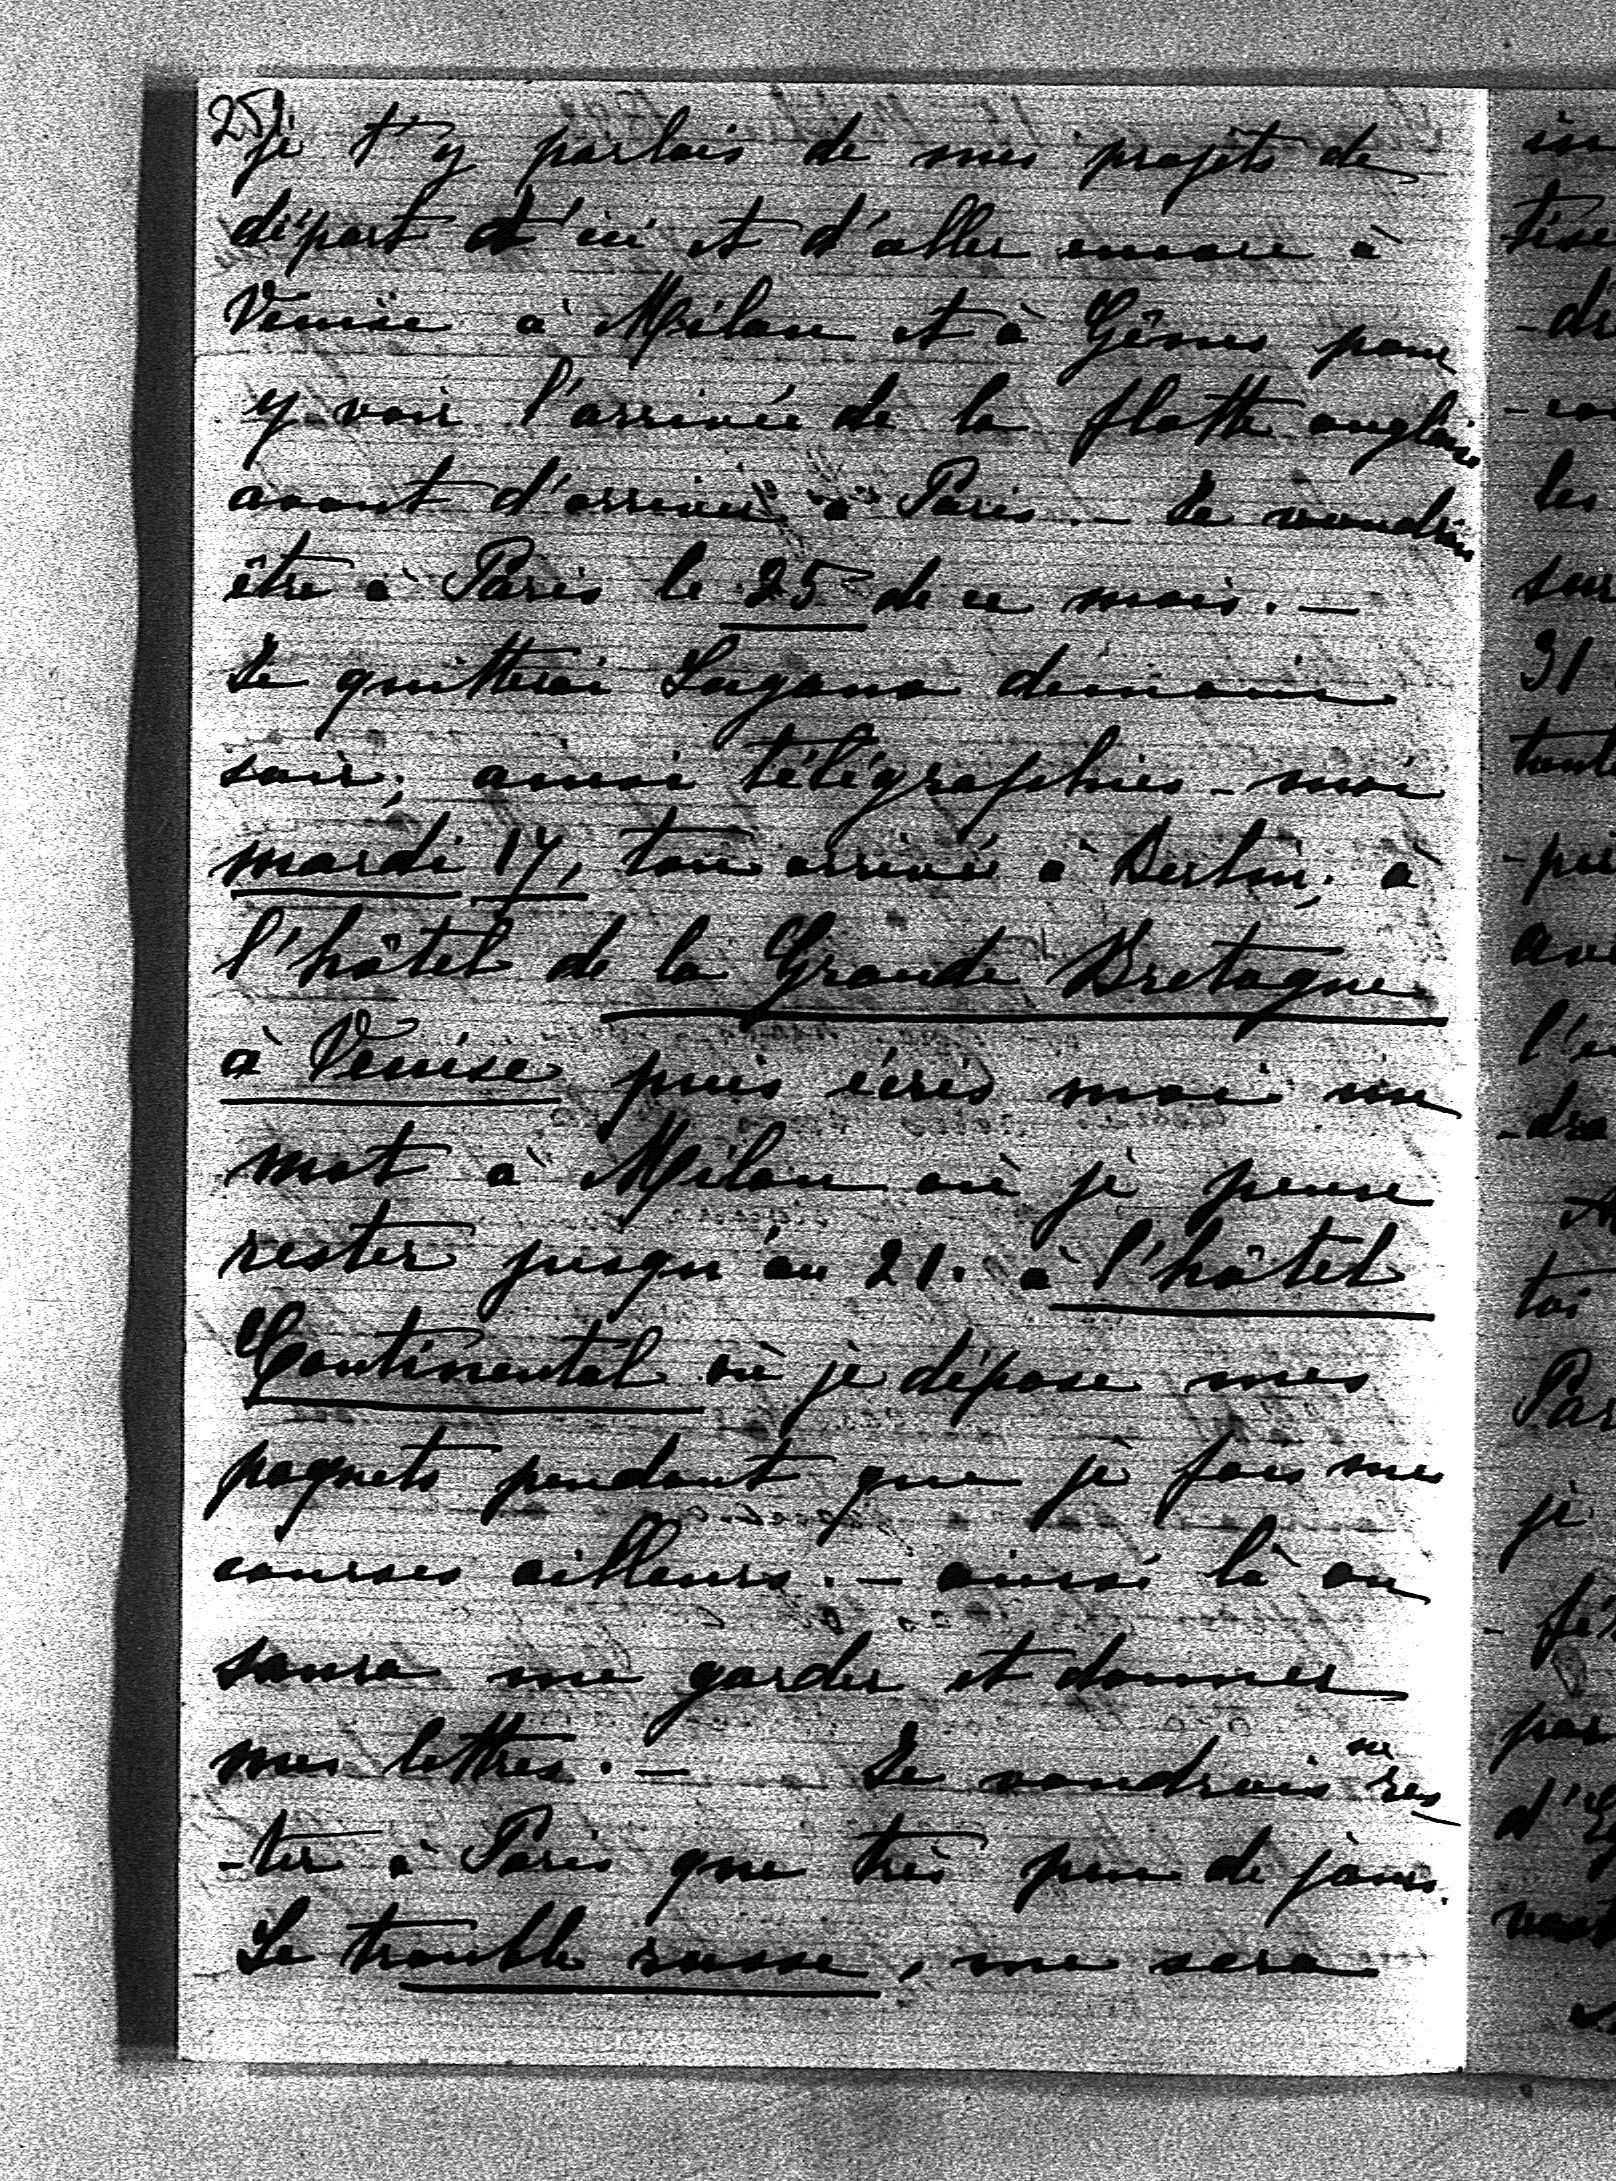 25)
je t'y parlais de mes projets de
départ d'ici et d'aller encore à
Venise à Milan et à Gênes pour
y voir l'arrivée de la flotte anglaise
avant d'arriver à Paris. – Je voudrais
être à Paris le 25 de ce mois. –
Je quitterai Lugano demain
soir; ainsi télégraphies-moi
mardi 17, ton arrivée à Berlin, à
l'hôtel de la Grande Bretagne
à Venise puis écris moi un
mot à Milan où je pense
rester jusqu'au 21. à l'hôtel
Continental où je dépose mes
paquets pendant que je fais mes
courses ailleurs. – aussi là on
saura me garder et donner
mes lettres. – Je voudrais ne res
-ter à Paris que très peu de jours.
Le trouble russe, me sera
in
tése
-dr
-co
les
sur
31
toute
-pié
ave
l'a
-dra
A
toi
Par
je
- fé
par
d'E